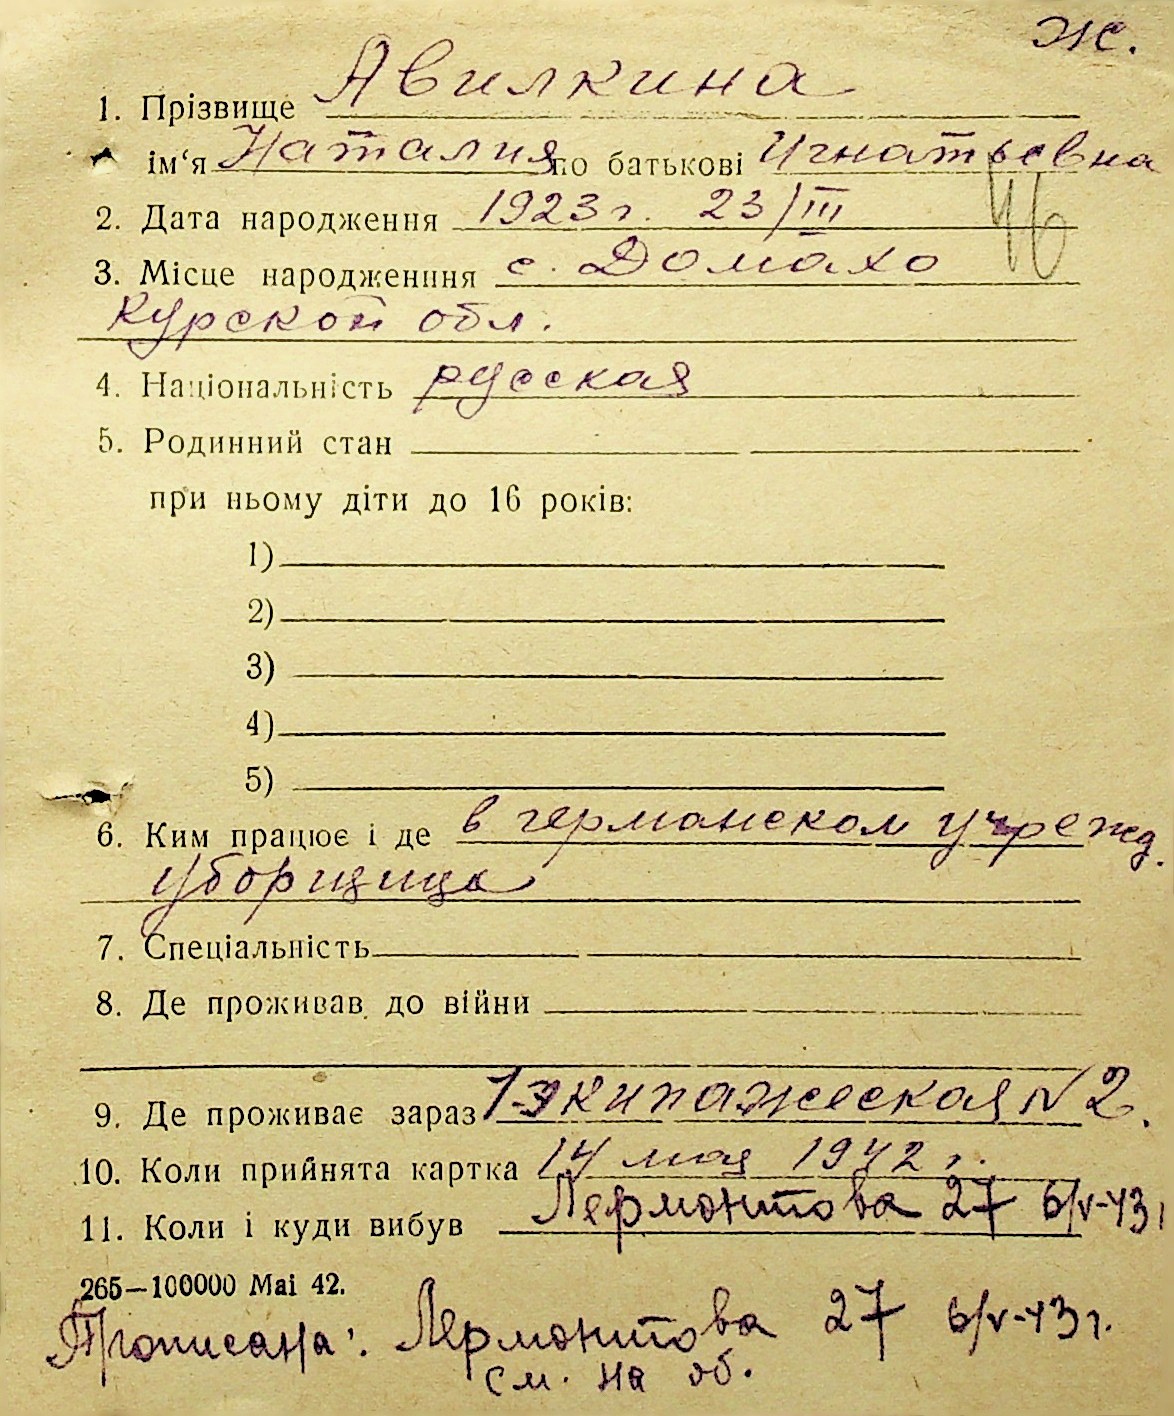 ж.
1. Прізвище Авилкина
ім‘я Наталия по батькові Игнатьевна
2. Дата народження 1923 г. 23/III
46
3. Місце народженння с. Домахо
Курской обл.
4. Національність русская
5. Родинний стан
при ньому діти до 16 років:
1)
2)
3)
4)
5)
6. Ким працює і де в германском учрежд.
уборщица
7. Спеціальність
8. Де проживав до війни
9. Де проживає зараз 1-экипажеская N 2.
10. Коли прийнята картка 14 мая 1942 г.
11. Коли і куди вибув Лермонтова 27 6/V-43 г
265—100000 Mai 42.
Прописана: Лермонтова 27 6/V-43 г.
см. на об.